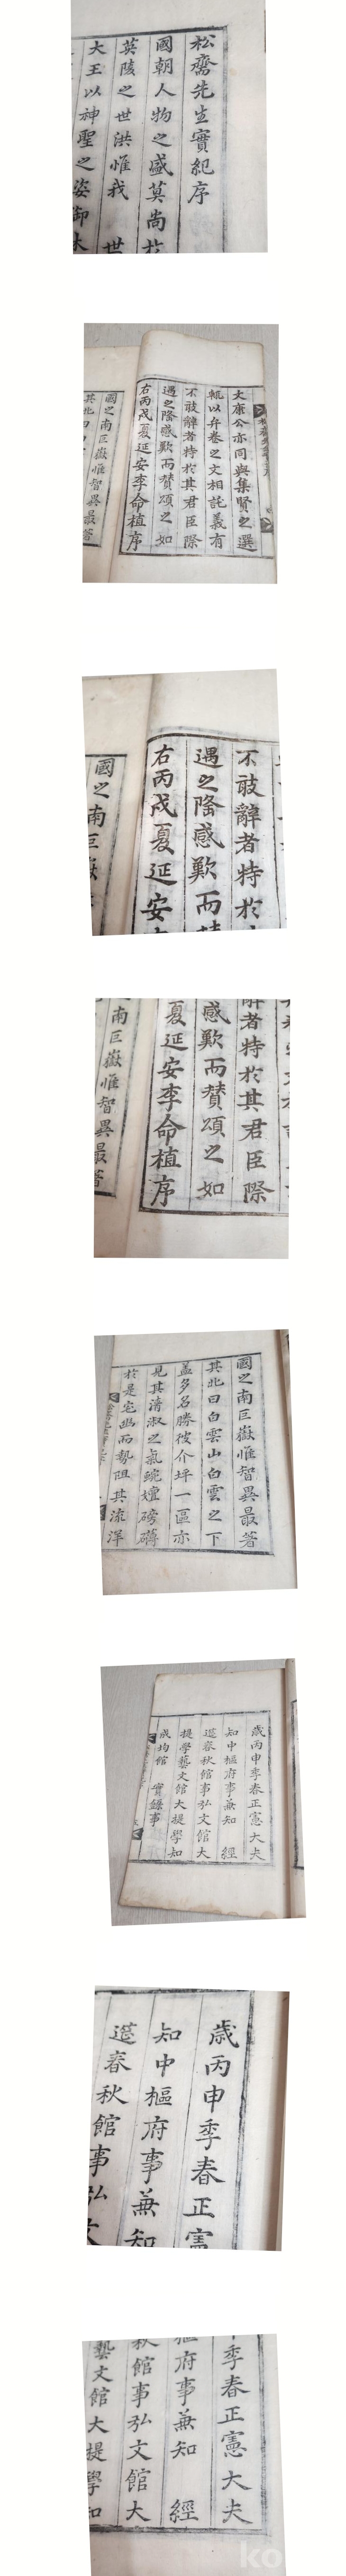 松齋先生實紀序
國朝人物之盛莫尚於
英陵之世洪惟我 世
大王以神聖之姿御
大康公亦同與集賢之選
輒以弁卷之文相託義有
不敢辭者特於其君臣際
遇之隆感歎而賛頌之如
右丙戌夏延安李命植序
國之南巨嶽惟智異最著
其北曰
不敢辭者特於
遇之隆感歎而
右丙戌夏延安
國之南巨嶽
辭者特於其君臣際
感歎而賛頌之如
夏延安李命植序
南巨嶽惟智異最著
國之南巨嶽惟智異最著
其北曰白雲山白雲之下
盖多名勝彼介坪一區亦
見其淸淑之氣蜿蟺磅礴
於是宅幽而勢阻其流洋
歲丙申季春正憲大夫
知中樞府事兼知 經
筵春秋館事弘文館大
提學藝文館大提學知
成均館 實錄事
歲丙申季春正憲
知中樞府事兼知
筵春秋館事弘文
季春正憲大夫
府事兼知 經
秋館事弘文館大
藝文館大提學知
ko